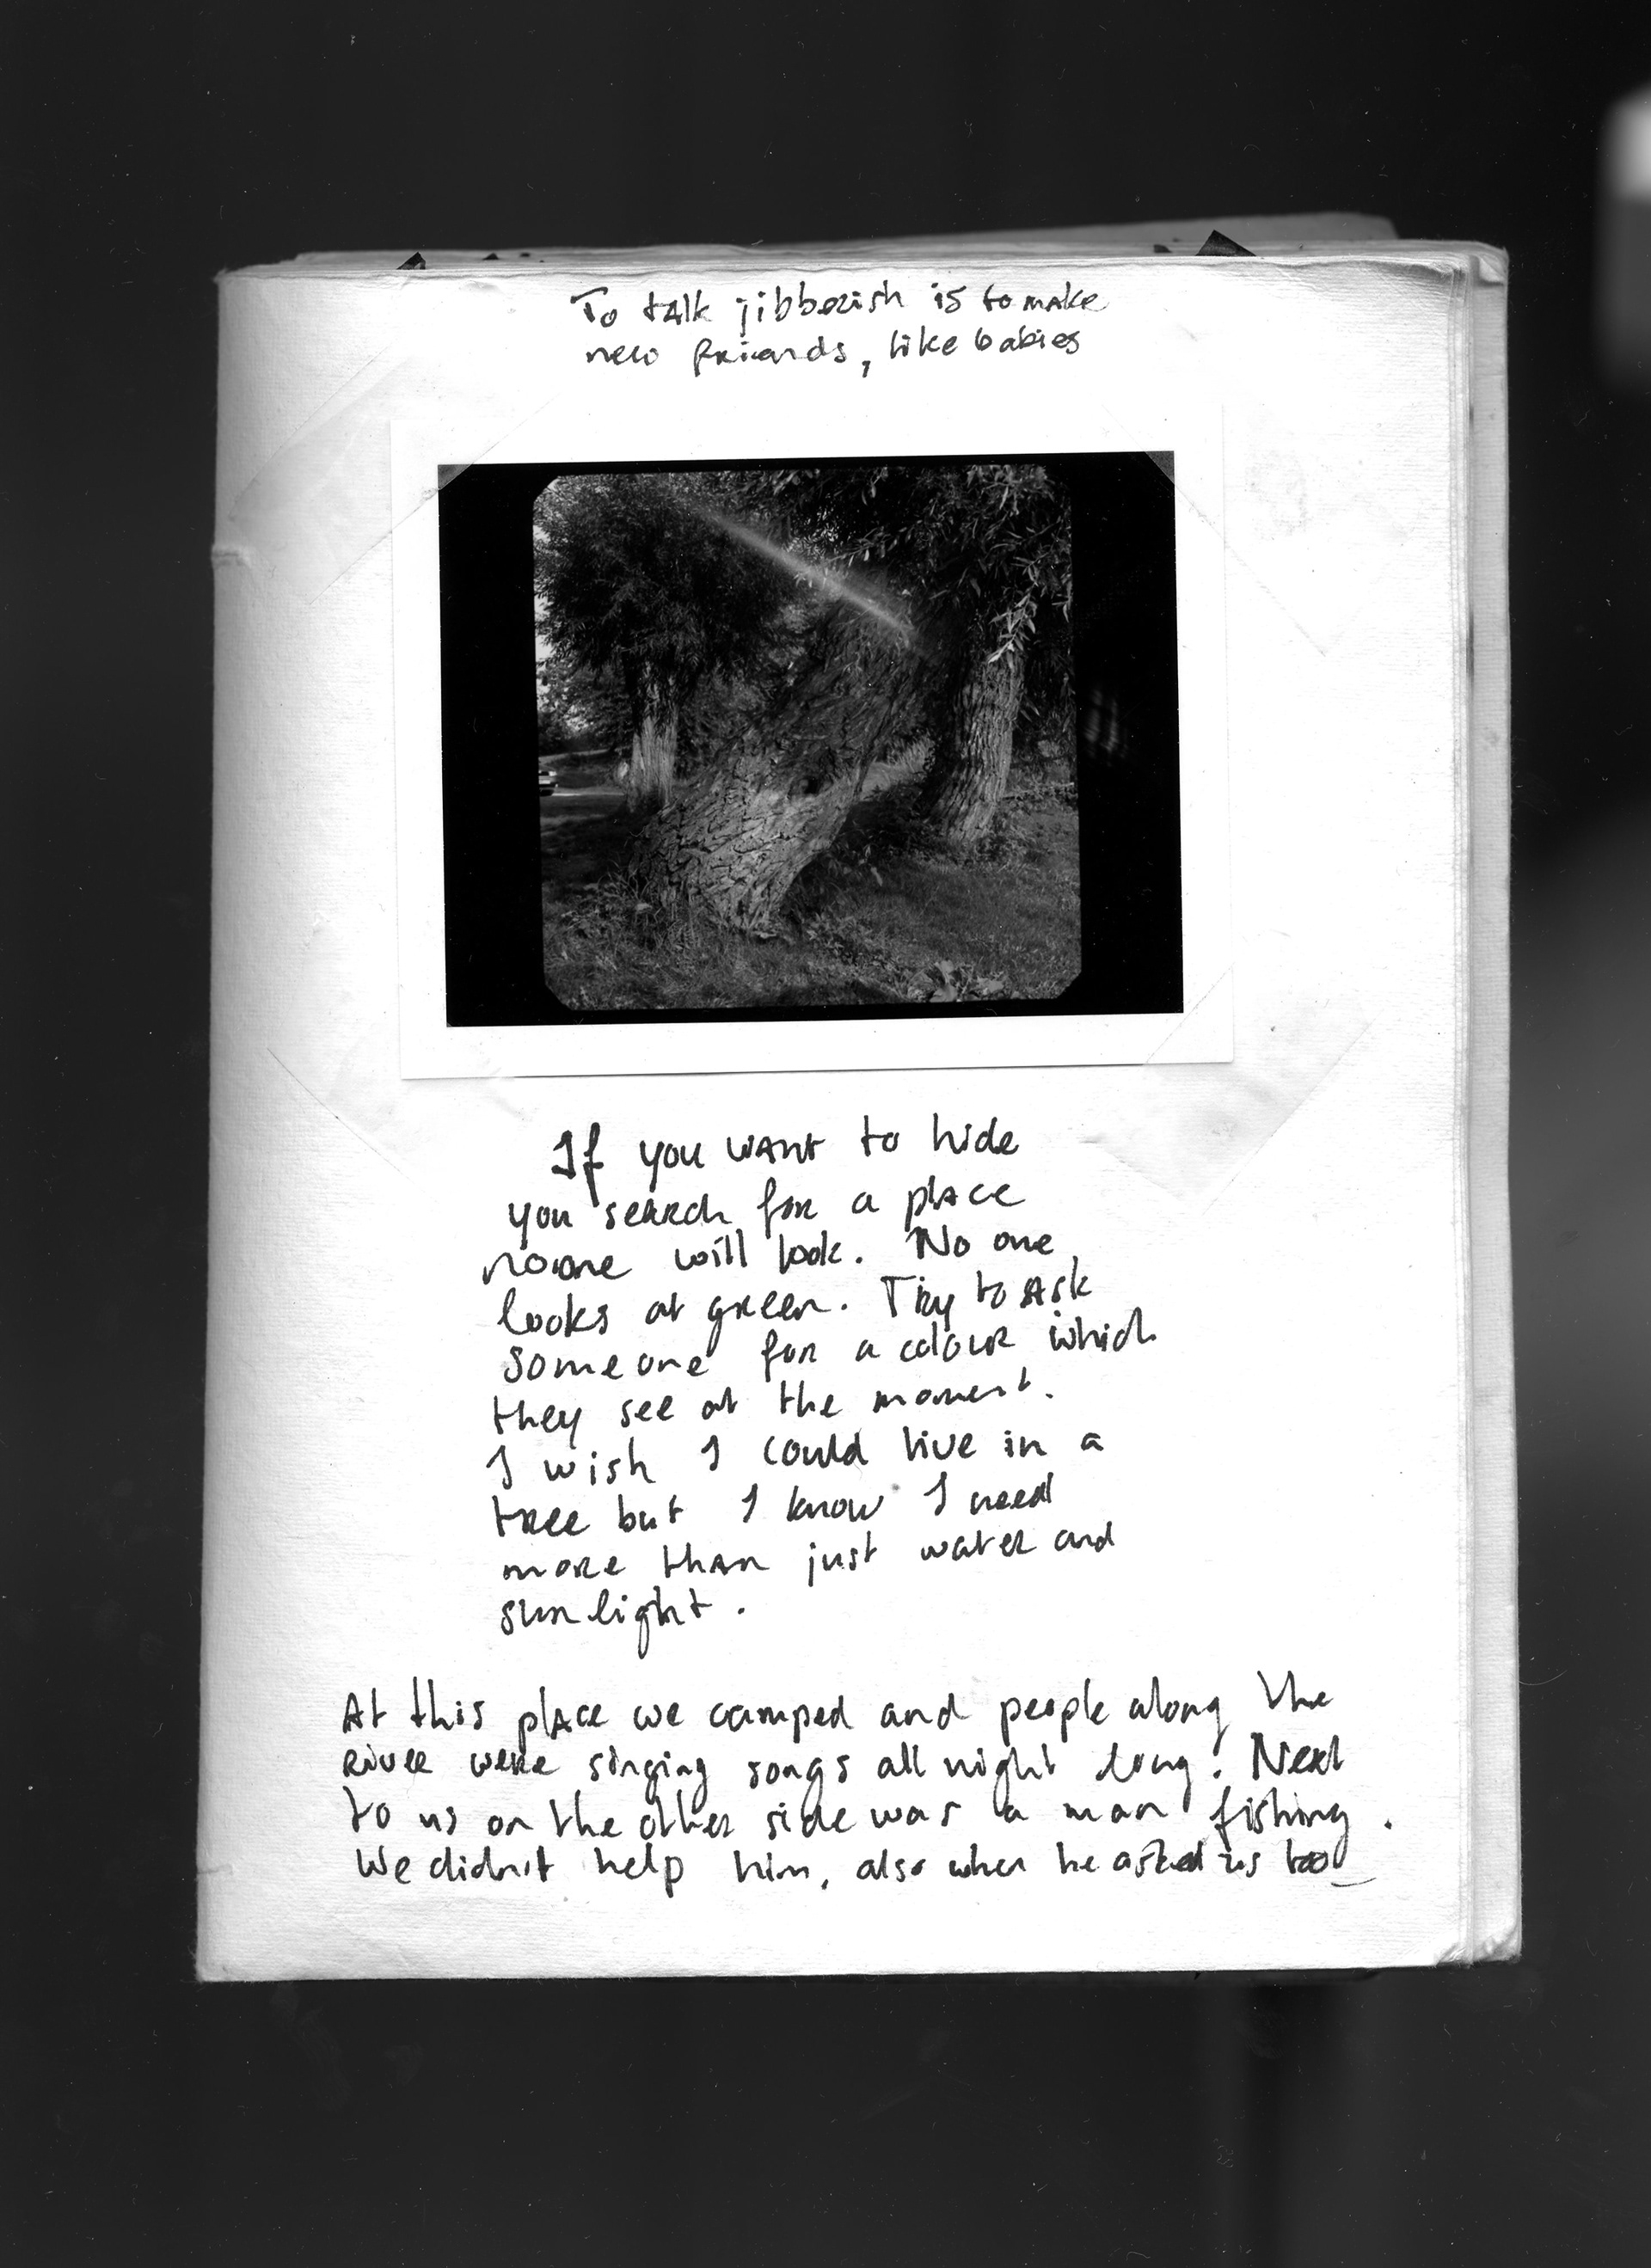 To talk jibberish is to make
new friends, like babies
If you want to hide
you search for a place
noone will look. No one
looks at green. Try to ask
someone for a colour which
they see at the moment.
I wish I could live in a
tree but I know I need
more than just water and
sunlight.
At this place we camped and people along the
river were singing songs all night long. Next
to us on the other side was a man fishing.
We didn't help him, also when he asked us to